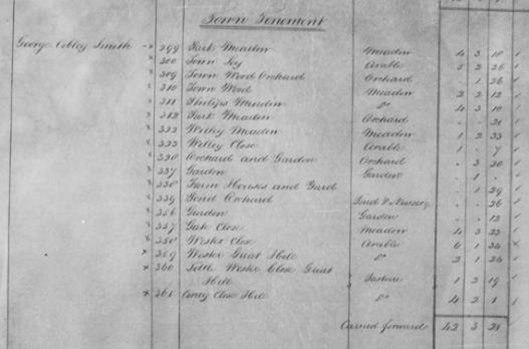 Town Tenement
George Cobley Smith 299 Part Meadow Meadow 4 3 10
300 Town Ley Arable 5 2 26
309 Town Wood Orchard Orchard . 1 26
310 Town Wood Meadow 2 2 12
311 Philips Meadow Do 4 3 10
312 Part Meadow Orchard . . 21
332 Willey Meadow Meadow 1 2 33
333 Willey Close Arable 1 . 7
Orchard and Garden Orchard . 3 20
337 Garden Garden . 1 .
Farm Houses and Yard . 1 29
339 Pond Orchard Pond & Nursery . . 26
Garden Garden . . 13
Gate Close Meadow 4 3 33
Wester Close Arable 6 1 34
Wester Great Hele Do 2 1 24
360 Little Wester Close Great
Hele Pasture 1 2 19
361 Coney Close Hele Do 4 2 1
Carried forward 42 3 21